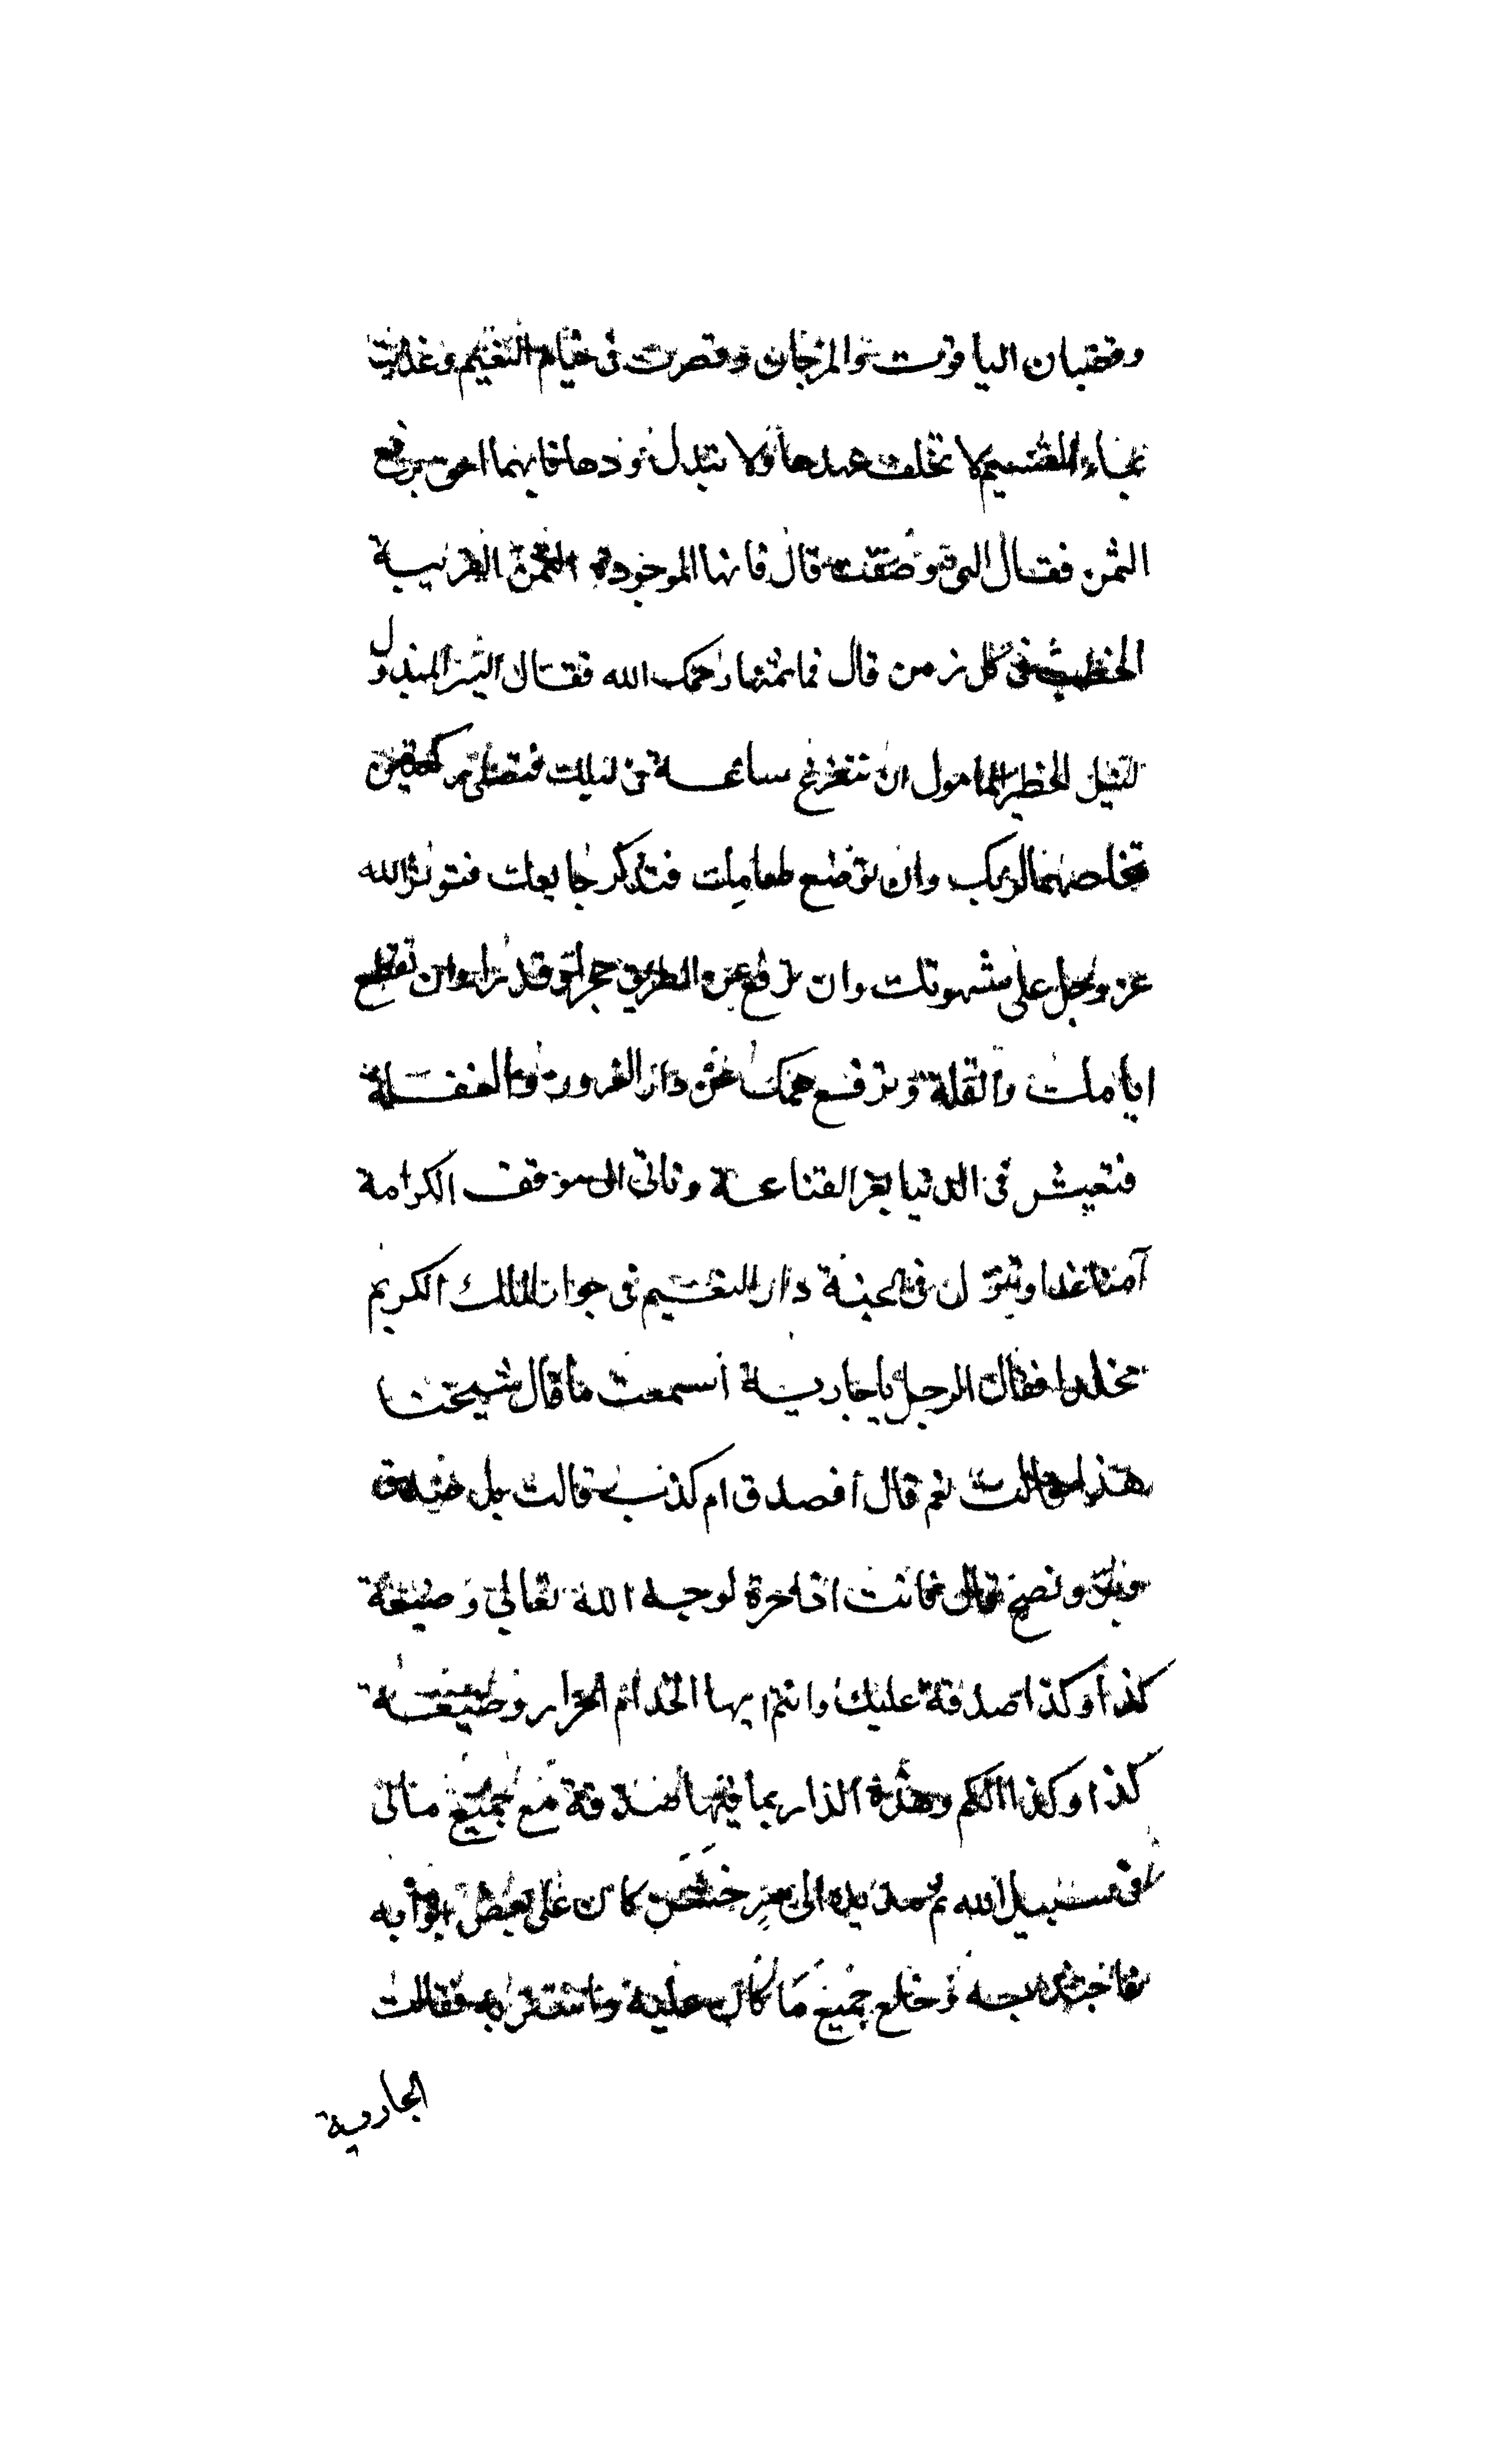 وقضبان الياقوت والمرجان وقصرت في خيام النعيم وغذيت
بماء التسنيم لا تخلف عهدها ولا تبدل ودها فايهما احق برفع
الثمن فقال التي وصفت قال فانها الموجودة الثمن القريبة
الخطب في كل زمن قال فما ثمنها رحمك الله فقال اليسير المبذول
لنيل الخطير المامول ان تتفرغ ساعة في ليلك فتصلي ركعتين
تخلصهما لربك وان توضع طعامك فتذكر جايعك فتوثر الله
عز وجل على شهوتك وان ترفع عن الطريق حجرا او قذرا وان تقطع
ايامك والقلة وترفع همك عن دار الغرور والغفلة
فتعيش في الدنيا بعز القناعة وتاتي الى موقف الكرامة
آمنا غدا وتنزل في الجنة دار النعيم في جوار الملك الكريم
مخلدا فقال الرجل يا جارية أسمعت ما قال شيخنا
هذا قالت نعم قال أفصدق ام كذب قالت بل صدق
وبر ونصح قال فانت اذا حرة لوجه الله تعالى وضيعة
كذا وكذا صدقة عليك وانتم ايها الخدام احرار وضيعة
كذا وكذا لكم وهذه الدار بما فيها صدقة مع جميع مالي
في سبيل الله ثم مد يده الى ستر خشن كان على بعض ابوابه
فاجتذبه وخلع جميع ما كان عليه واستتر به فقالت
الجارية